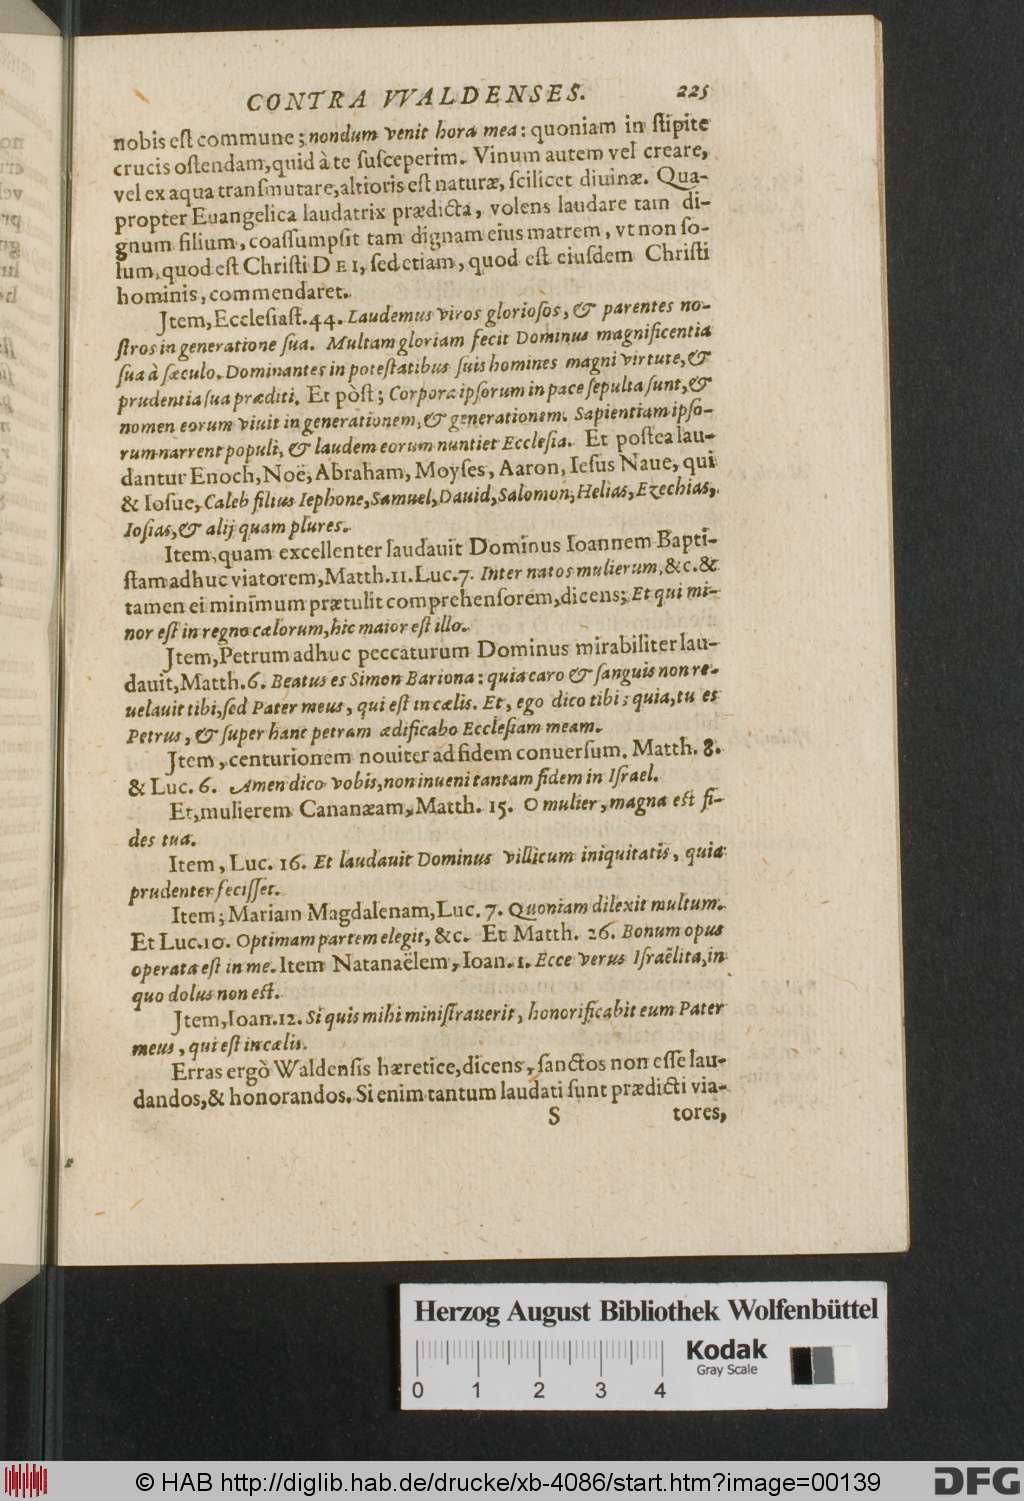 CONTRA VVALDENSES. 225
nobis est commune; nondum venit hora mea: quoniam in stipite
crucis ostendam, quid à te susceperim. Vinum autem vel creare,
vel ex aqua transmutare, altioris est naturæ, scilicet diuinæ. Qua-
propter Euangelica laudatrix prædicta, volens laudare tam di-
gnum filium, coassumpsit tam dignam eius matrem, vt non so-
lum, quod est Christi DEI, sed etiam, quod est eiusdem Christi
hominis, commendaret.
Item, Ecclesiast. 44. Laudemus viros gloriosos, & parentes no-
stros in generatione sua. Multam gloriam fecit Dominus magnificentia
sua à sæculo. Dominantes in potestatibus suis homines magni virtute, &
prudentia sua præditi. Et pòst; Corpora ipsorum in pace sepulta sunt, &
nomen eorum viuit in generationem, & generationem. Sapientiam ipso-
rum narrent populi, & laudem eorum nuntiet Ecclesia. Et postea lau-
dantur Enoch, Noë, Abraham, Moyses, Aaron, Iesus Naue, qui
& Iosue, Caleb filius Iephone, Samuel, Dauid, Salomon, Helias, Ezechias,
Iosias, & alij quam plures.
Item, quam excellenter laudauit Dominus Ioannem Bapti-
stam adhuc viatorem, Matth. 11. Luc. 7. Inter natos mulierum, &c. &
tamen ei minimum prætulit comprehensorem, dicens; Et qui mi-
nor est in regno cælorum, hic maior est illo.
Item, Petrum adhuc peccaturum Dominus mirabiliter lau-
dauit, Matth. 6. Beatus es Simon Bariona: quia caro & sanguis non re-
uelauit tibi, sed Pater meus, qui est in cælis. Et, ego dico tibi; quia, tu es
Petrus, & super hanc petram ædificabo Ecclesiam meam.
Item, centurionem nouiter ad fidem conuersum. Matth. 8.
& Luc. 6. Amen dico vobis, non inueni tantam fidem in Israel.
Et, mulierem Cananæam, Matth. 15. O mulier, magna est fi-
des tua.
Item, Luc. 16. Et laudauit Dominus villicum iniquitatis, quia
prudenter fecisset.
Item; Mariam Magdalenam, Luc. 7. Quoniam dilexit multum.
Et Luc. 10. Optimam partem elegit, &c. Et Matth. 26. Bonum opus
operata est in me. Item Natanaëlem, Ioan. 1. Ecce verus Israëlita, in
quo dolus non est.
Item, Ioan. 12. Si quis mihi ministrauerit, honorificabit eum Pater
meus, qui est in cælis.
Erras ergò Waldensis hæretice, dicens, sanctos non esse lau-
dandos, & honorandos. Si enim tantum laudati sunt prædicti via-
S tores,
Herzog August Bibliothek Wolfenbüttel
Kodak
Gray Scale
0 1 2 3 4
© HAB http://diglib.hab.de/drucke/xb-4086/start.htm?image=00139
DFG